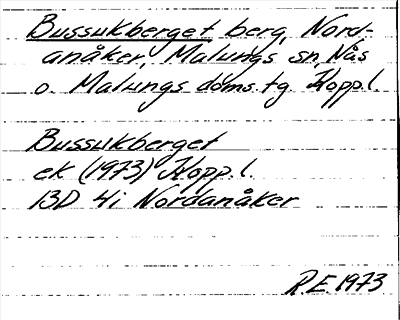 Bussukberget berg, Nord-
anåker, Malungs sn, Nås
o. Malungs doms.tg Kopp.l.
Bussukberget
ek (1973) Kopp.l.
13D 4i Nordanåker
R.E. 1973